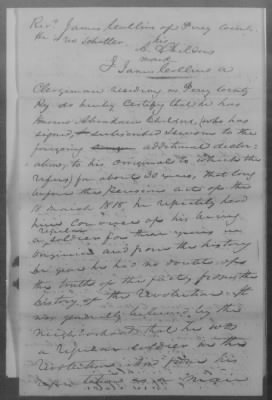 Rev. James Collins of Perry County
his
A. Childers
mark
I James Collins a
Clergeman residing in Perry County
Ky do hereby Certify that he has
known Abraham Childers, (who has
signed, & subscribed & sworn to the
foregoing additional declar-
ation, to his original to which this
refers) for about 30 years, that long
before the Pension act of the
18 march 1818. he repeatedly heard
him Converse of his being
a regular
soldier for three years in
Virginia and from the history
he gave he has no doubts of
the truth of the facts, from the
history, of the Revolution. It
was generally believed by the
neighborhood that he was
a regular soldier in the
Revolution. from his